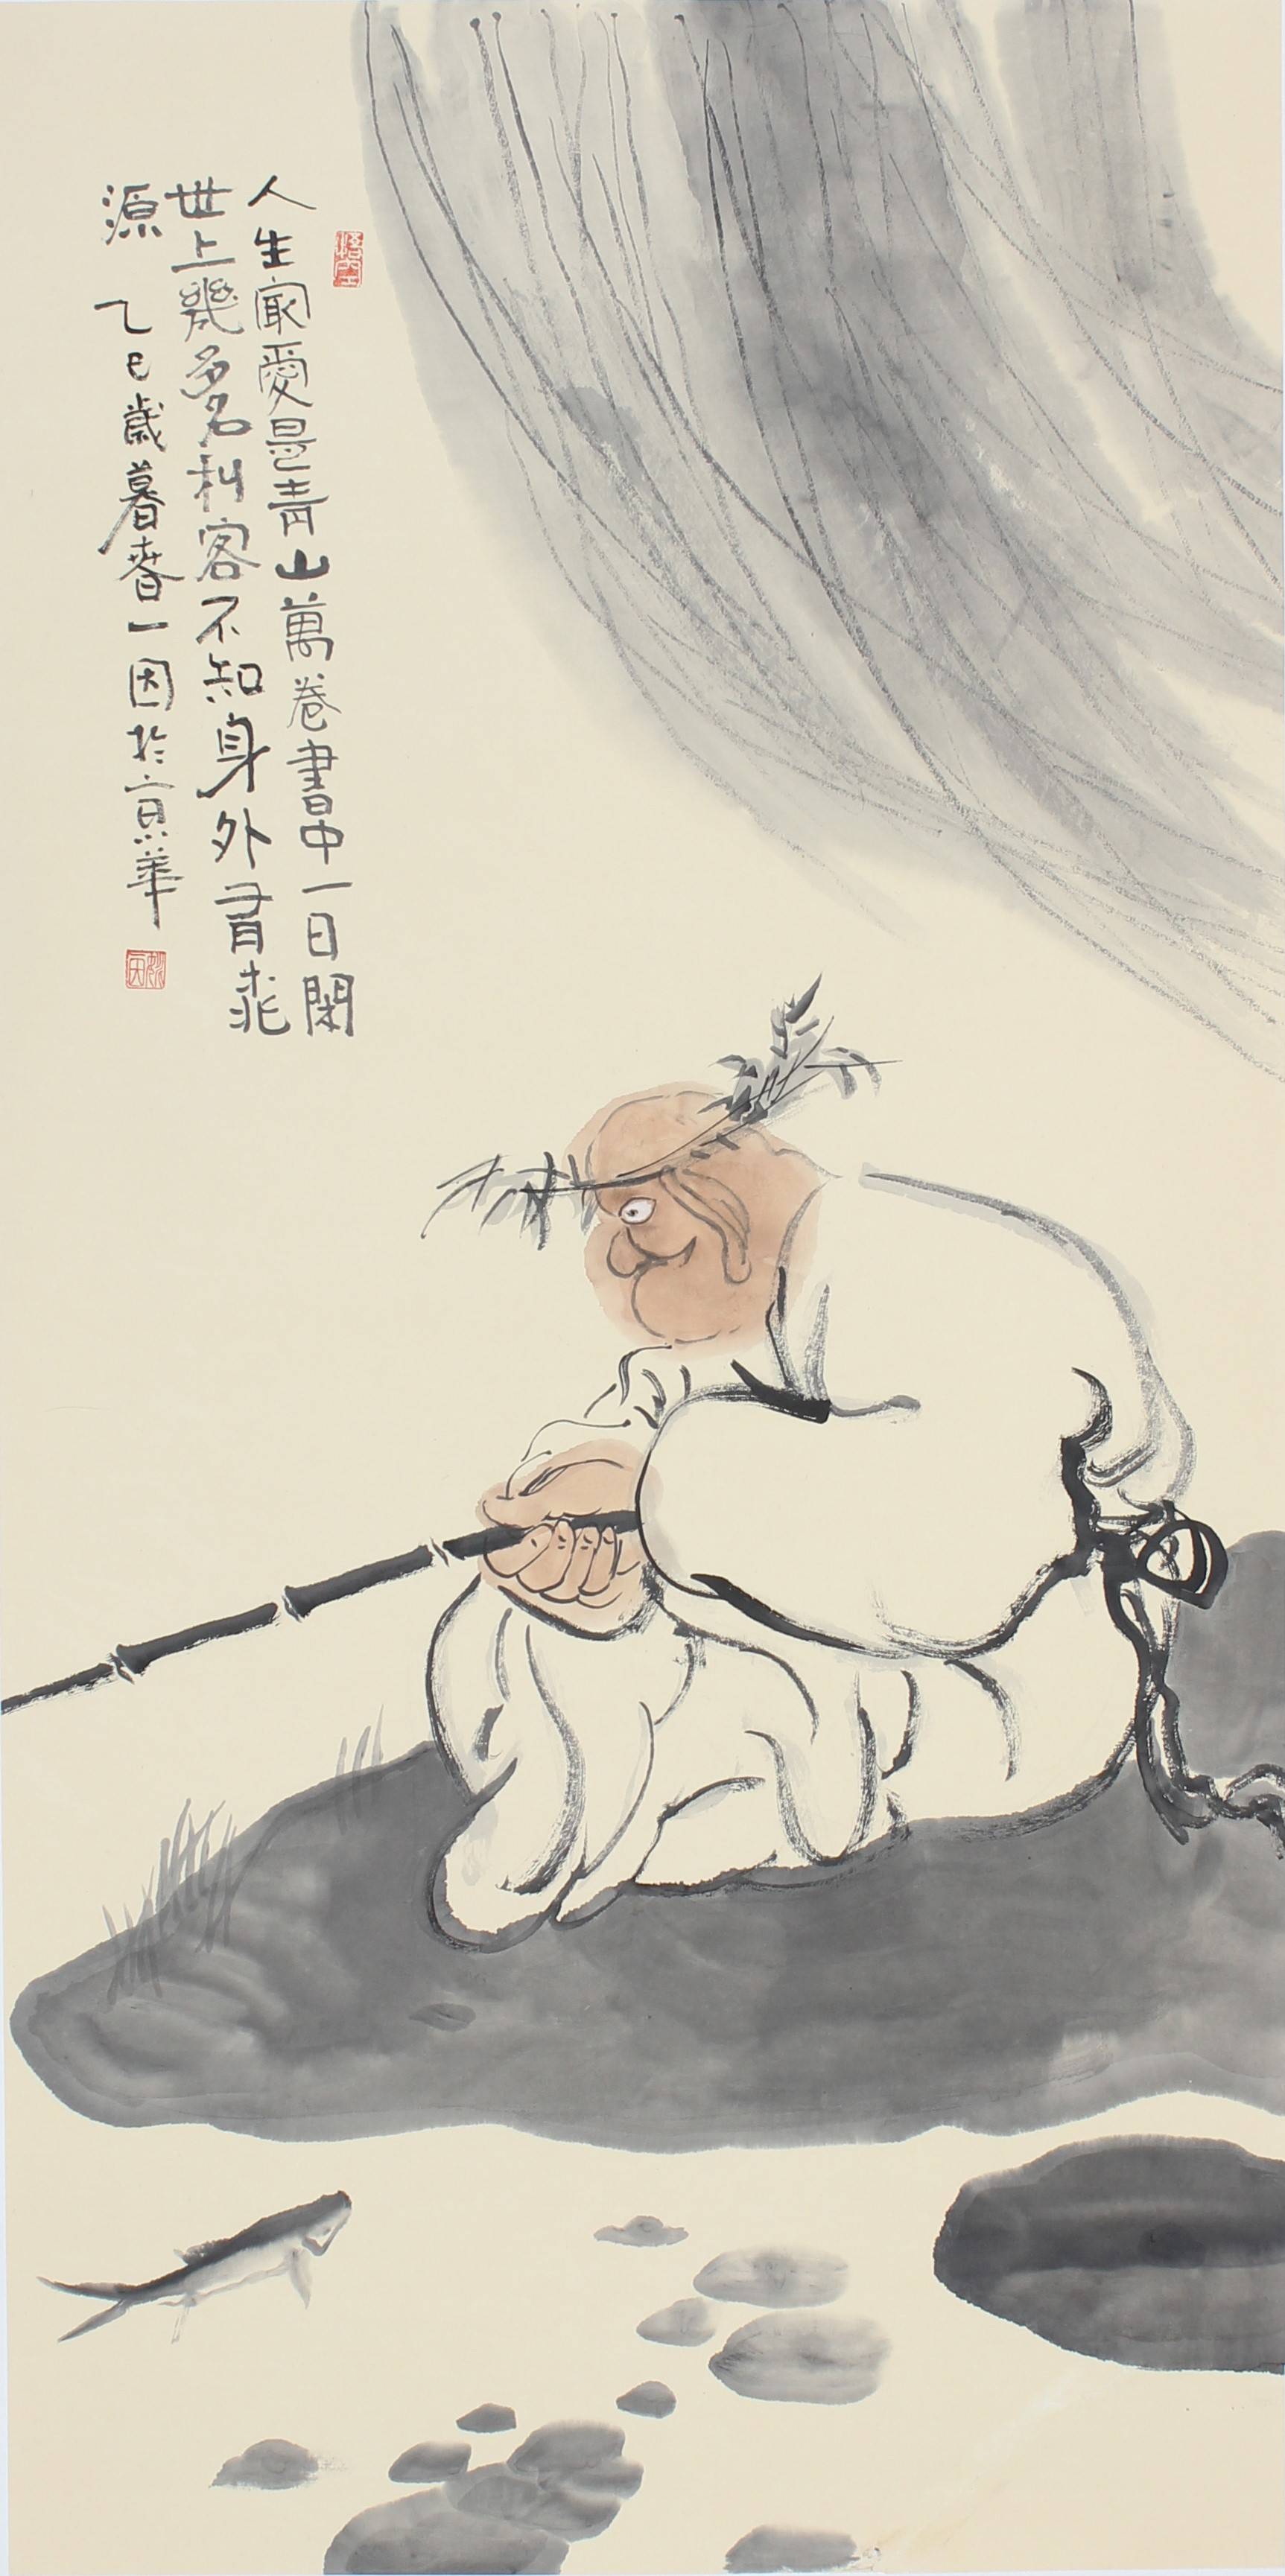 人生最愛是青山萬卷書中一日閑
世上幾多名利客不知身外有桃
源 乙巳歲暮春一因於京華
悟堂